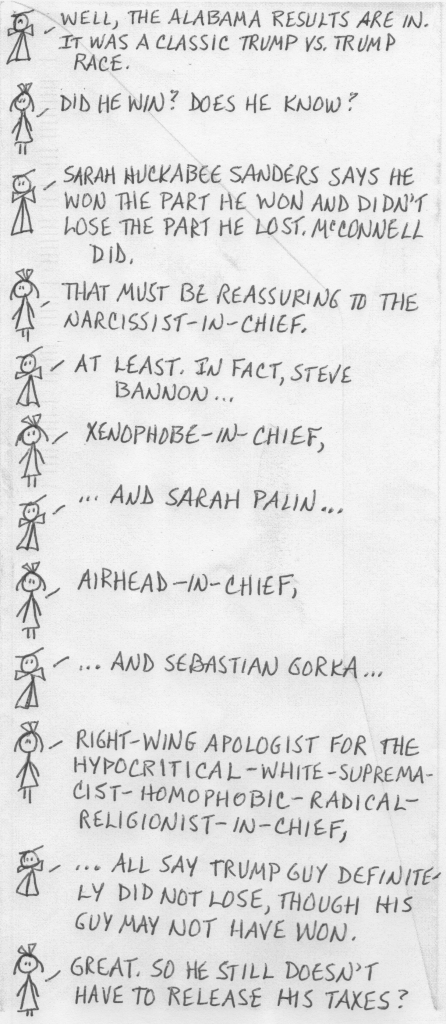 WELL, THE ALABAMA RESULTS ARE IN.
IT WAS A CLASSIC TRUMP VS. TRUMP
RACE.
DID HE WIN? DOES HE KNOW?
SARAH HUCKABEE SANDERS SAYS HE
WON THE PART HE WON AND DIDN'T
LOSE THE PART HE LOST. McCONNELL
DID.
THAT MUST BE REASSURING TO THE
NARCISSIST-IN-CHIEF.
AT LEAST. IN FACT, STEVE
BANNON...
XENOPHOBE-IN-CHIEF,
... AND SARAH PALIN...
AIRHEAD-IN-CHIEF,
... AND SEBASTIAN GORKA...
RIGHT-WING APOLOGIST FOR THE
HYPOCRITICAL-WHITE-SUPREMA-
CIST-HOMOPHOBIC-RADICAL-
RELIGIONIST-IN-CHIEF,
... ALL SAY TRUMP GUY DEFINITE-
LY DID NOT LOSE, THOUGH HIS
GUY MAY NOT HAVE WON.
GREAT. SO HE STILL DOESN'T
HAVE TO RELEASE HIS TAXES?